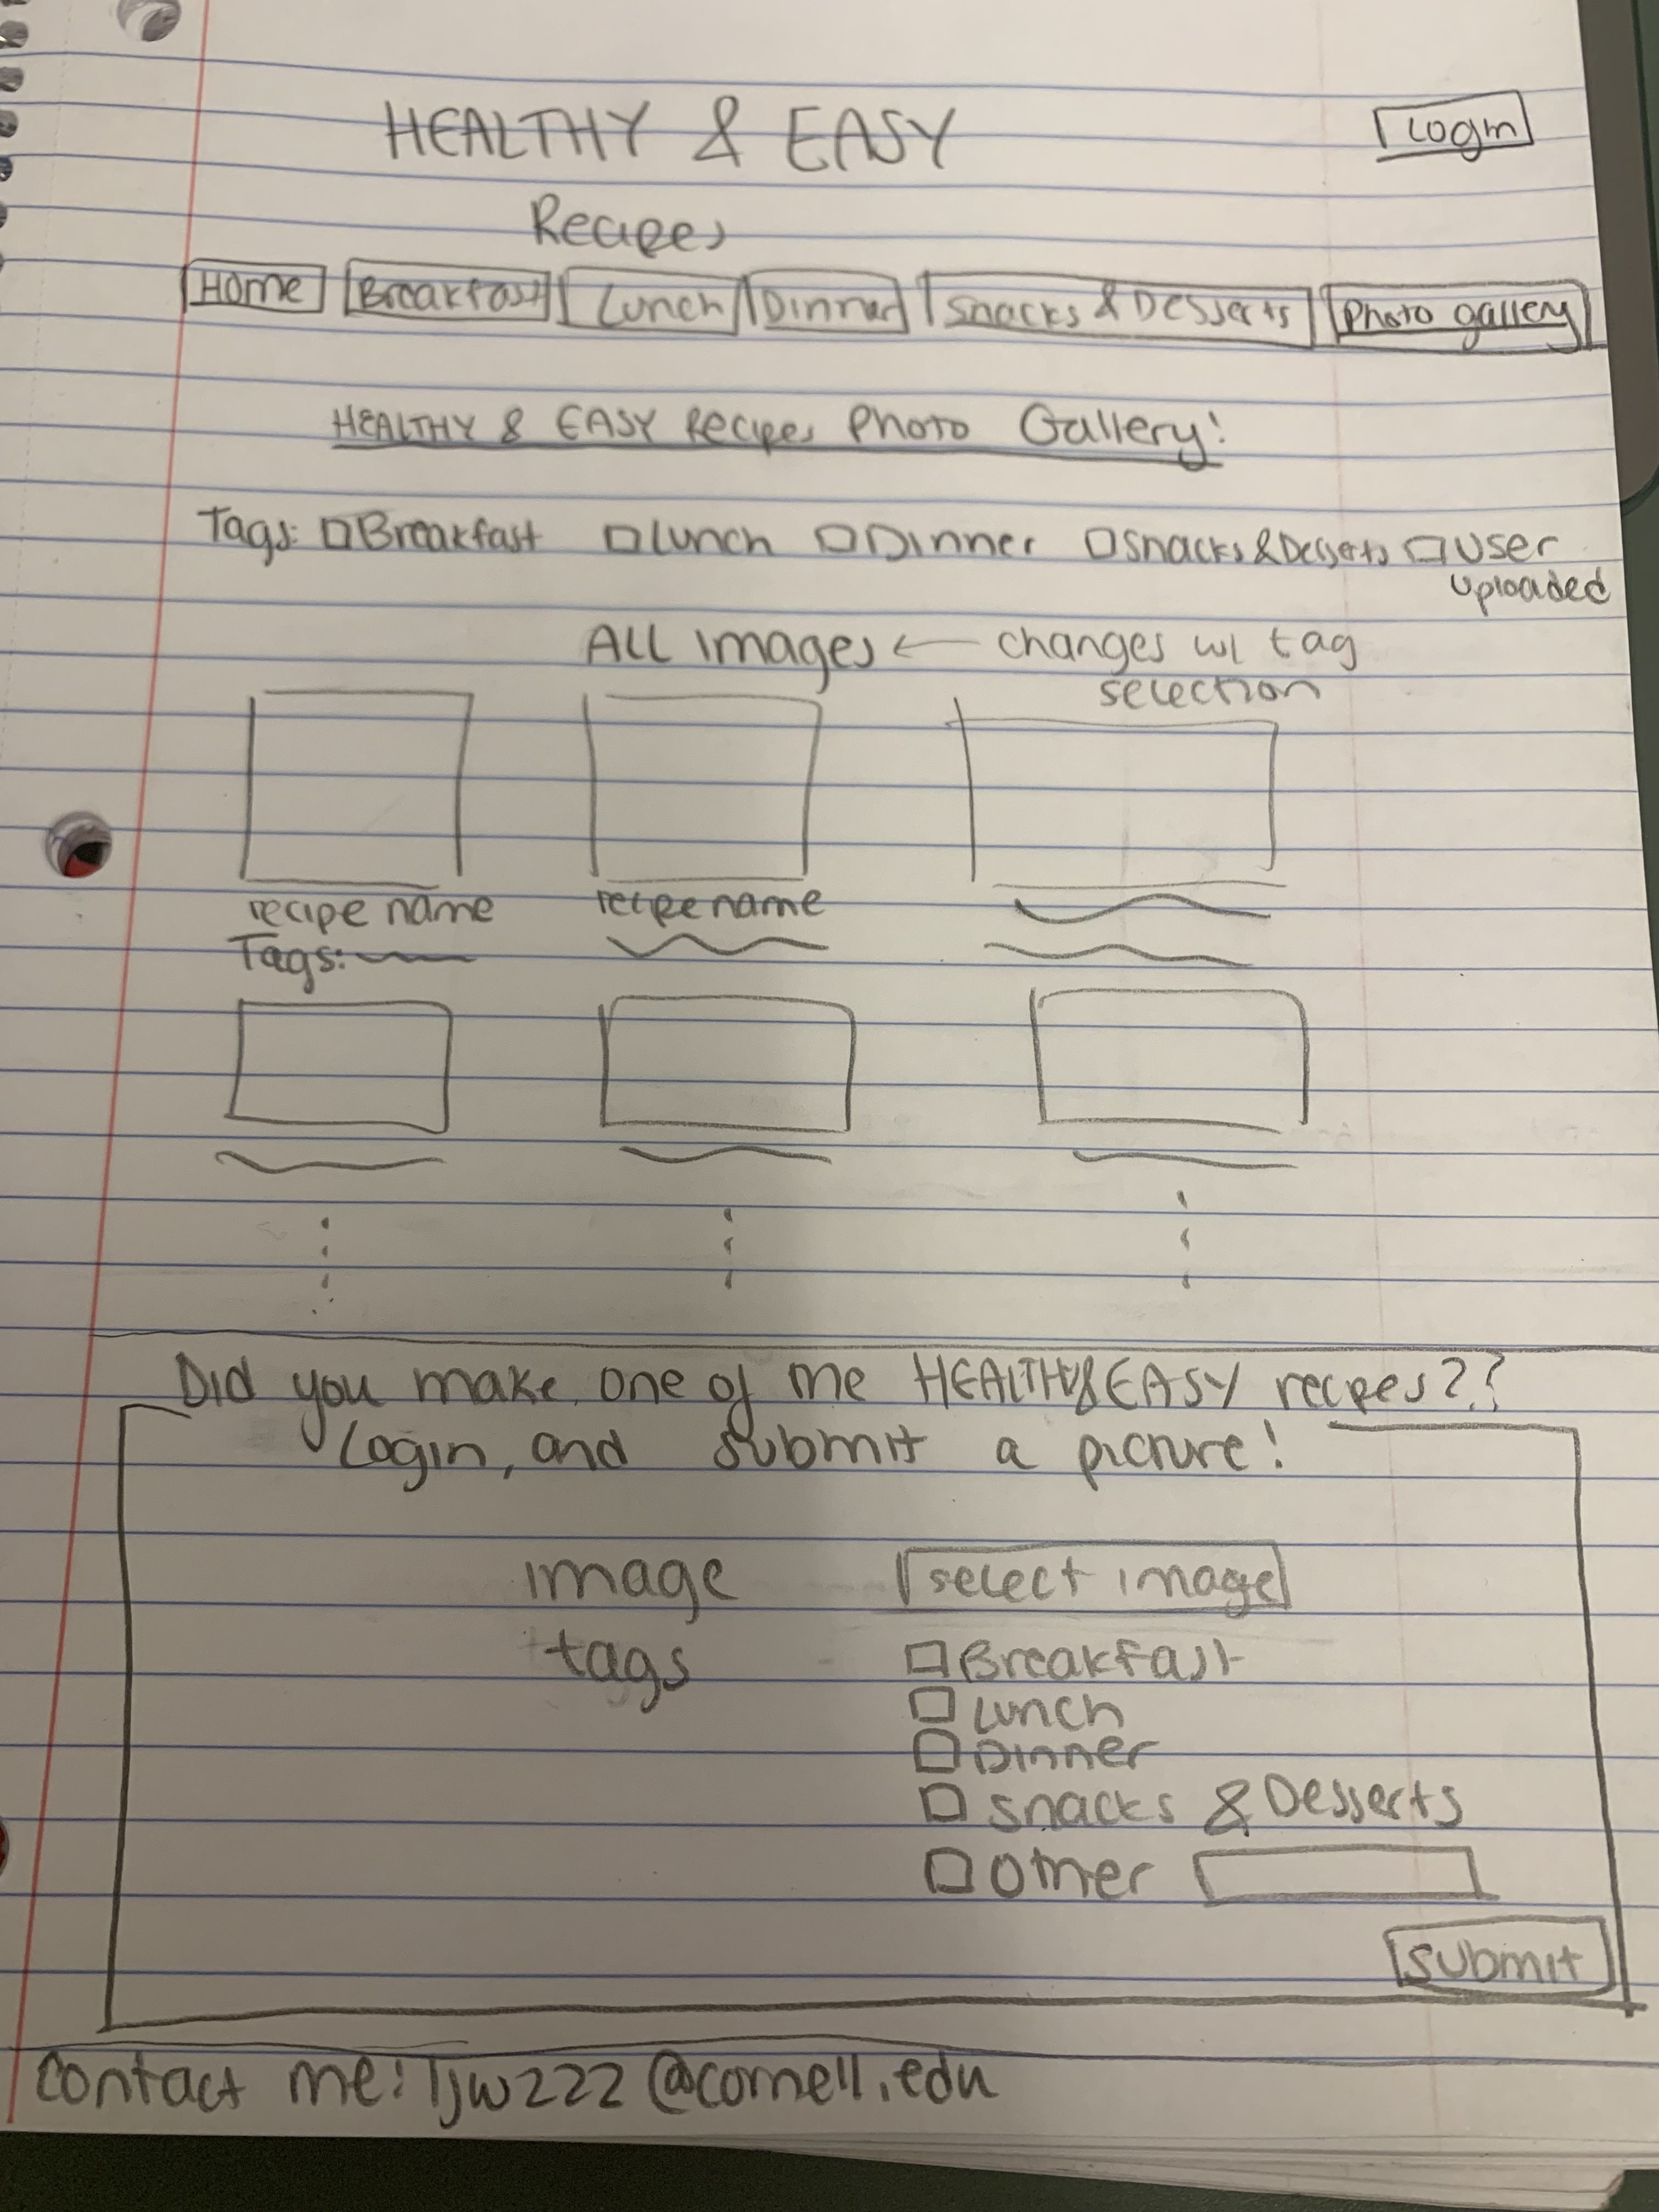 HEALTHY & EASY
Login
Recipes
Home Breakfast Lunch Dinner Snacks & Desserts Photo gallery
HEALTHY & EASY Recipes Photo Gallery!
Tags: Breakfast Lunch Dinner Snacks & Desserts User
Uploaded
ALL Images ← changes w/ tag
selection
recipe name recipe name
Tags:
Did you make one of me HEALTHY&EASY recipes??
Login, and submit a picture!
image select image
tags Breakfast
Lunch
Dinner
Snacks & Desserts
Other
submit
contact me: Tjw222@cornell.edu